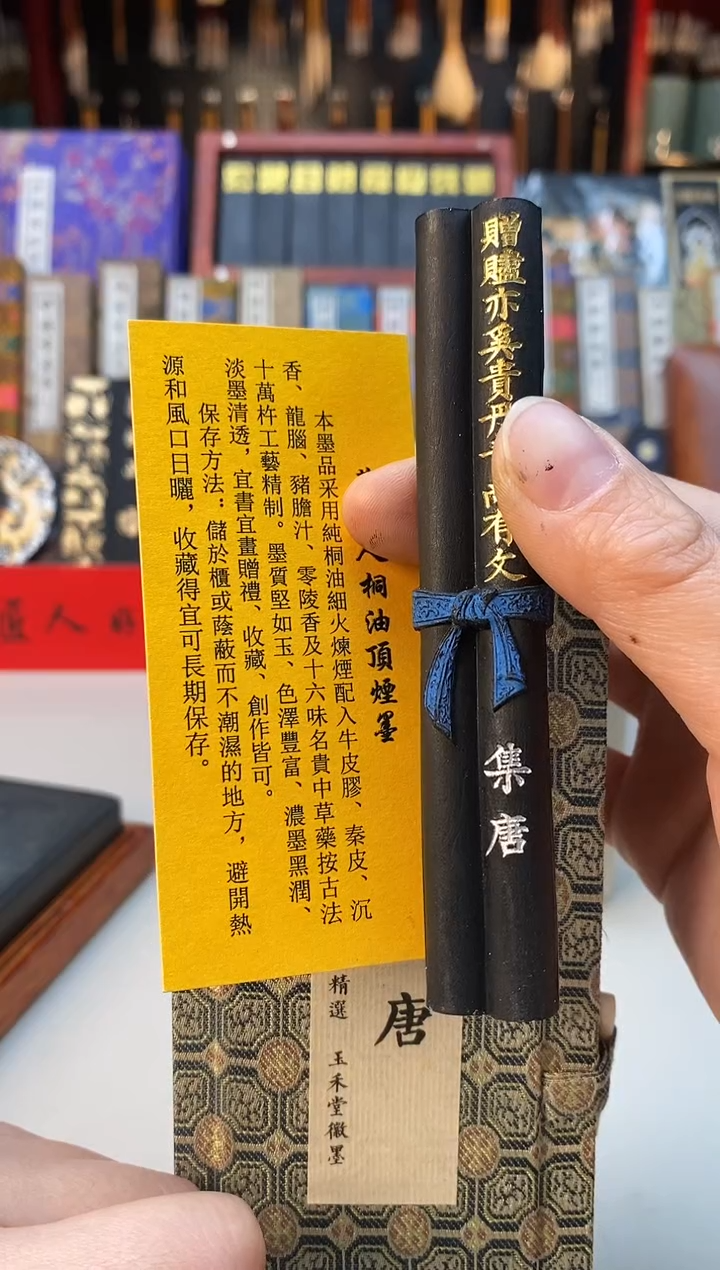 人桐油頂煙墨
本墨品采用純桐油細火煉煙配入牛皮膠、秦皮、沉
香、龍腦、豬膽汁、零陵香及十六味名貴中草藥按古法
十萬杵工藝精制。墨質堅如玉、色澤豐富、濃墨黑潤、
淡墨清透，宜書宜畫贈禮、收藏、創作皆可。
保存方法：儲於櫃或蔭蔽而不潮濕的地方，避開熱
源和風口日曬，收藏得宜可長期保存。
亦奚貴
尚有文
集唐
唐
精選 玉禾堂徽墨
匠人